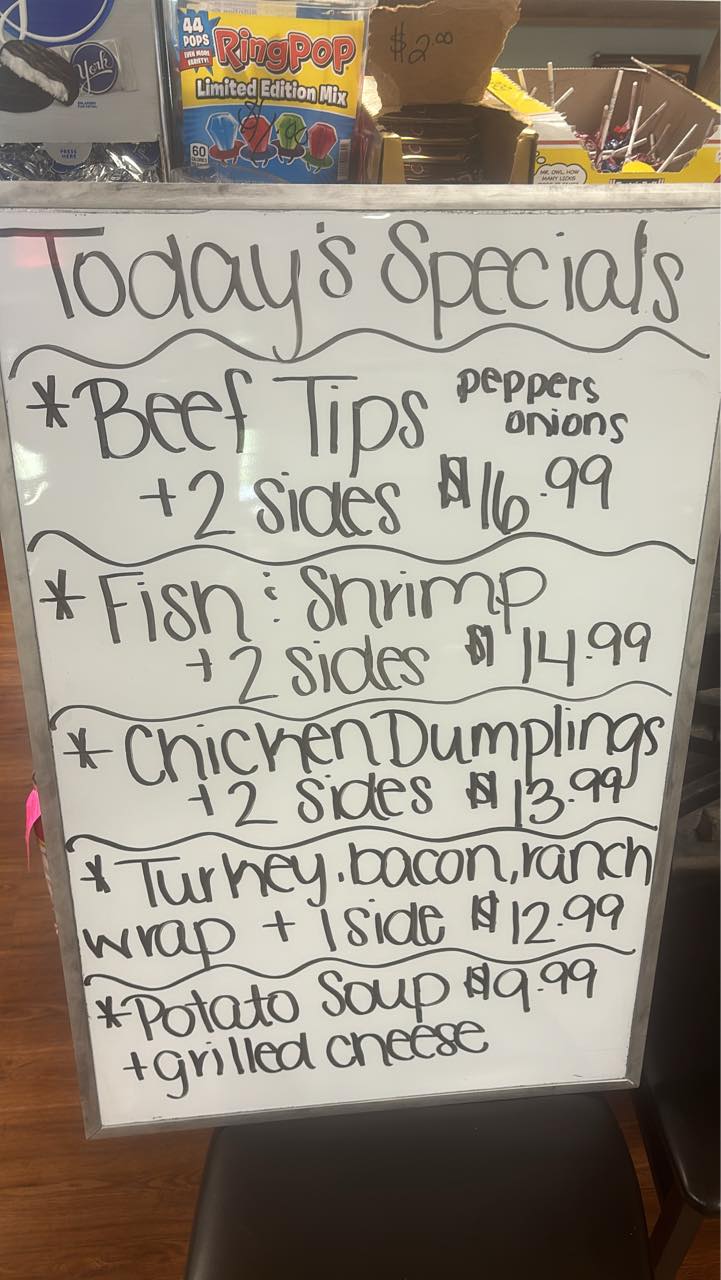 York
PRESS HERE
44 POPS
EVEN MORE VARIETY!
Ring Pop
Limited Edition Mix
60 CALORIES
$2.00
MR. OWL, HOW
MANY LICKS
Today's Specials
*Beef Tips peppers
onions
+2 sides $16.99
*Fish & Shrimp
+2 sides $14.99
*Chicken Dumplings
+2 sides $13.99
*Turkey, bacon, ranch
wrap + 1 side $12.99
*Potato Soup $9.99
+grilled cheese